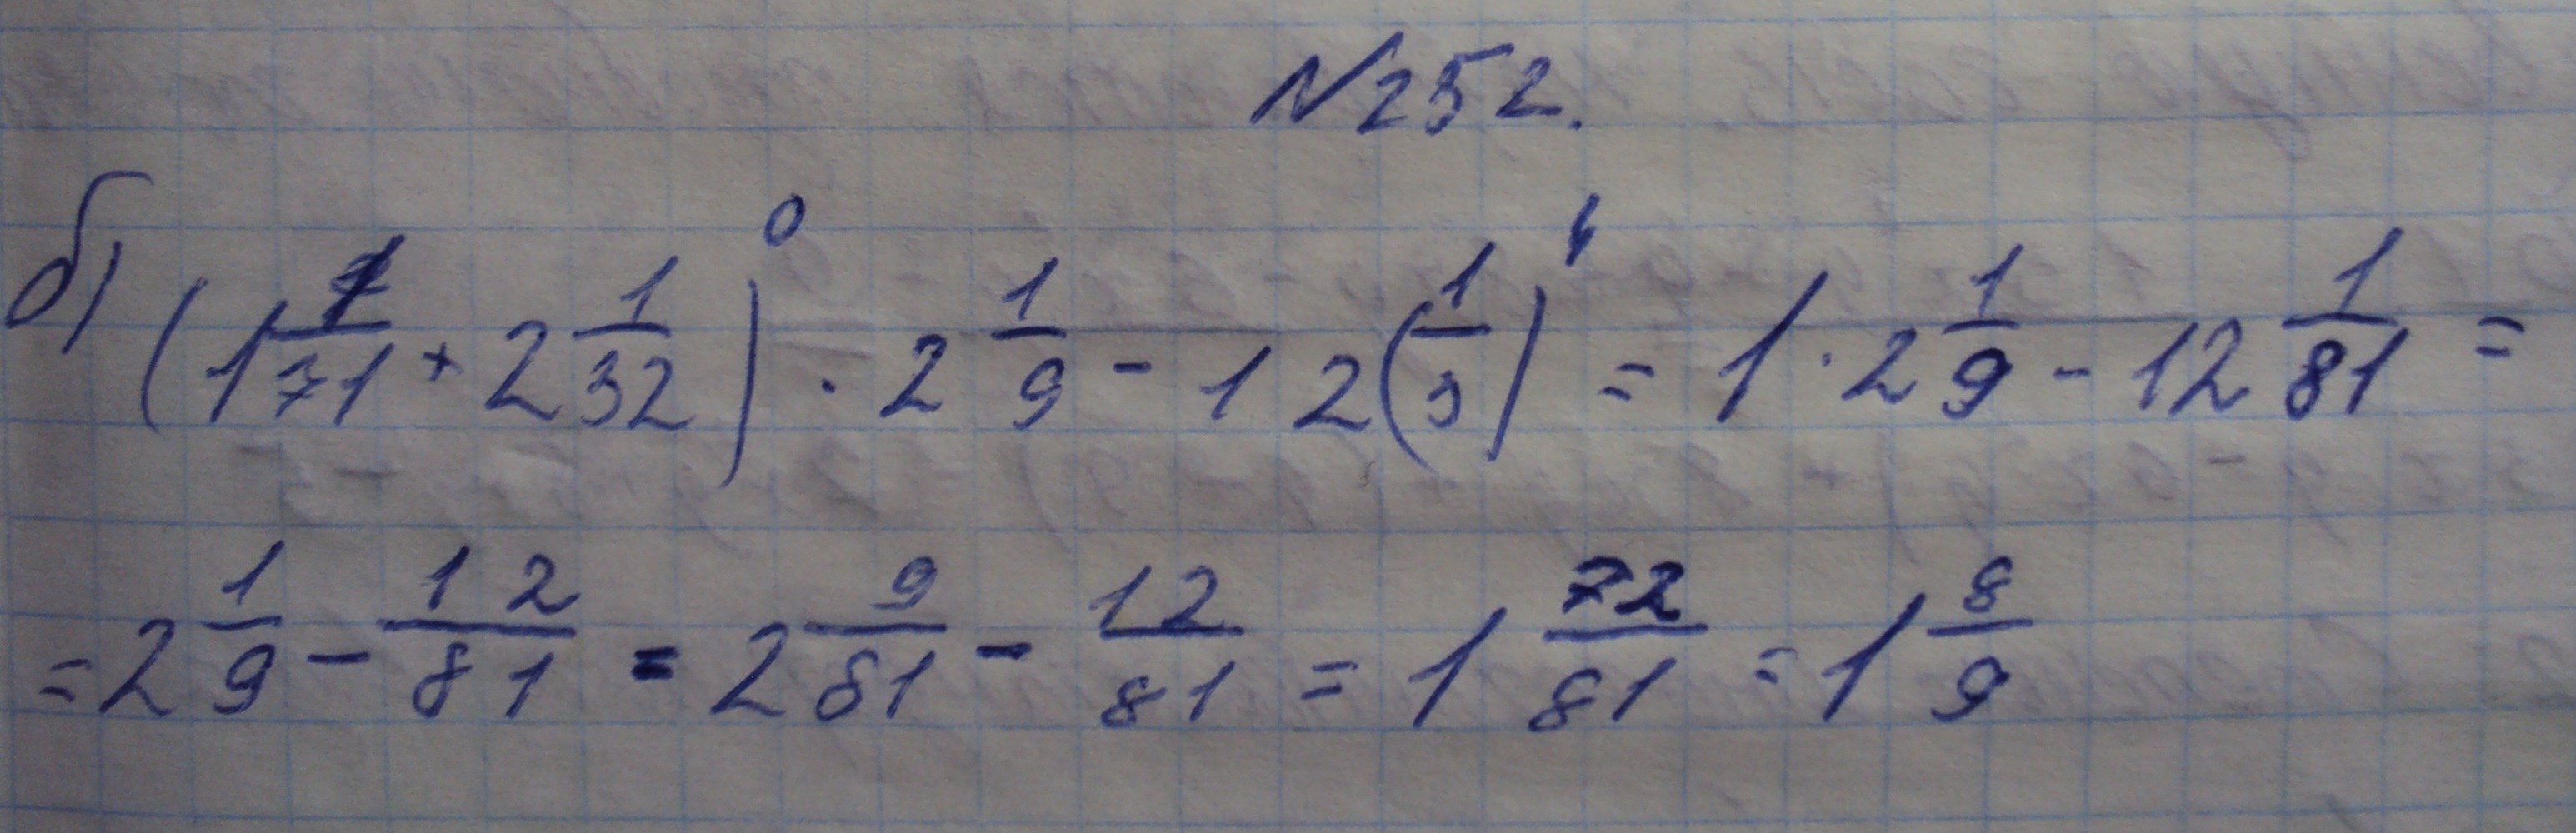 N252.
б) (1 1/71 + 2 1/32)⁰ · 2 1/9 - 12(1/3)⁴ = 1 · 2 1/9 - 12 1/81 =
= 2 1/9 - 12/81 = 2 9/81 - 12/81 = 1 72/81 = 1 8/9